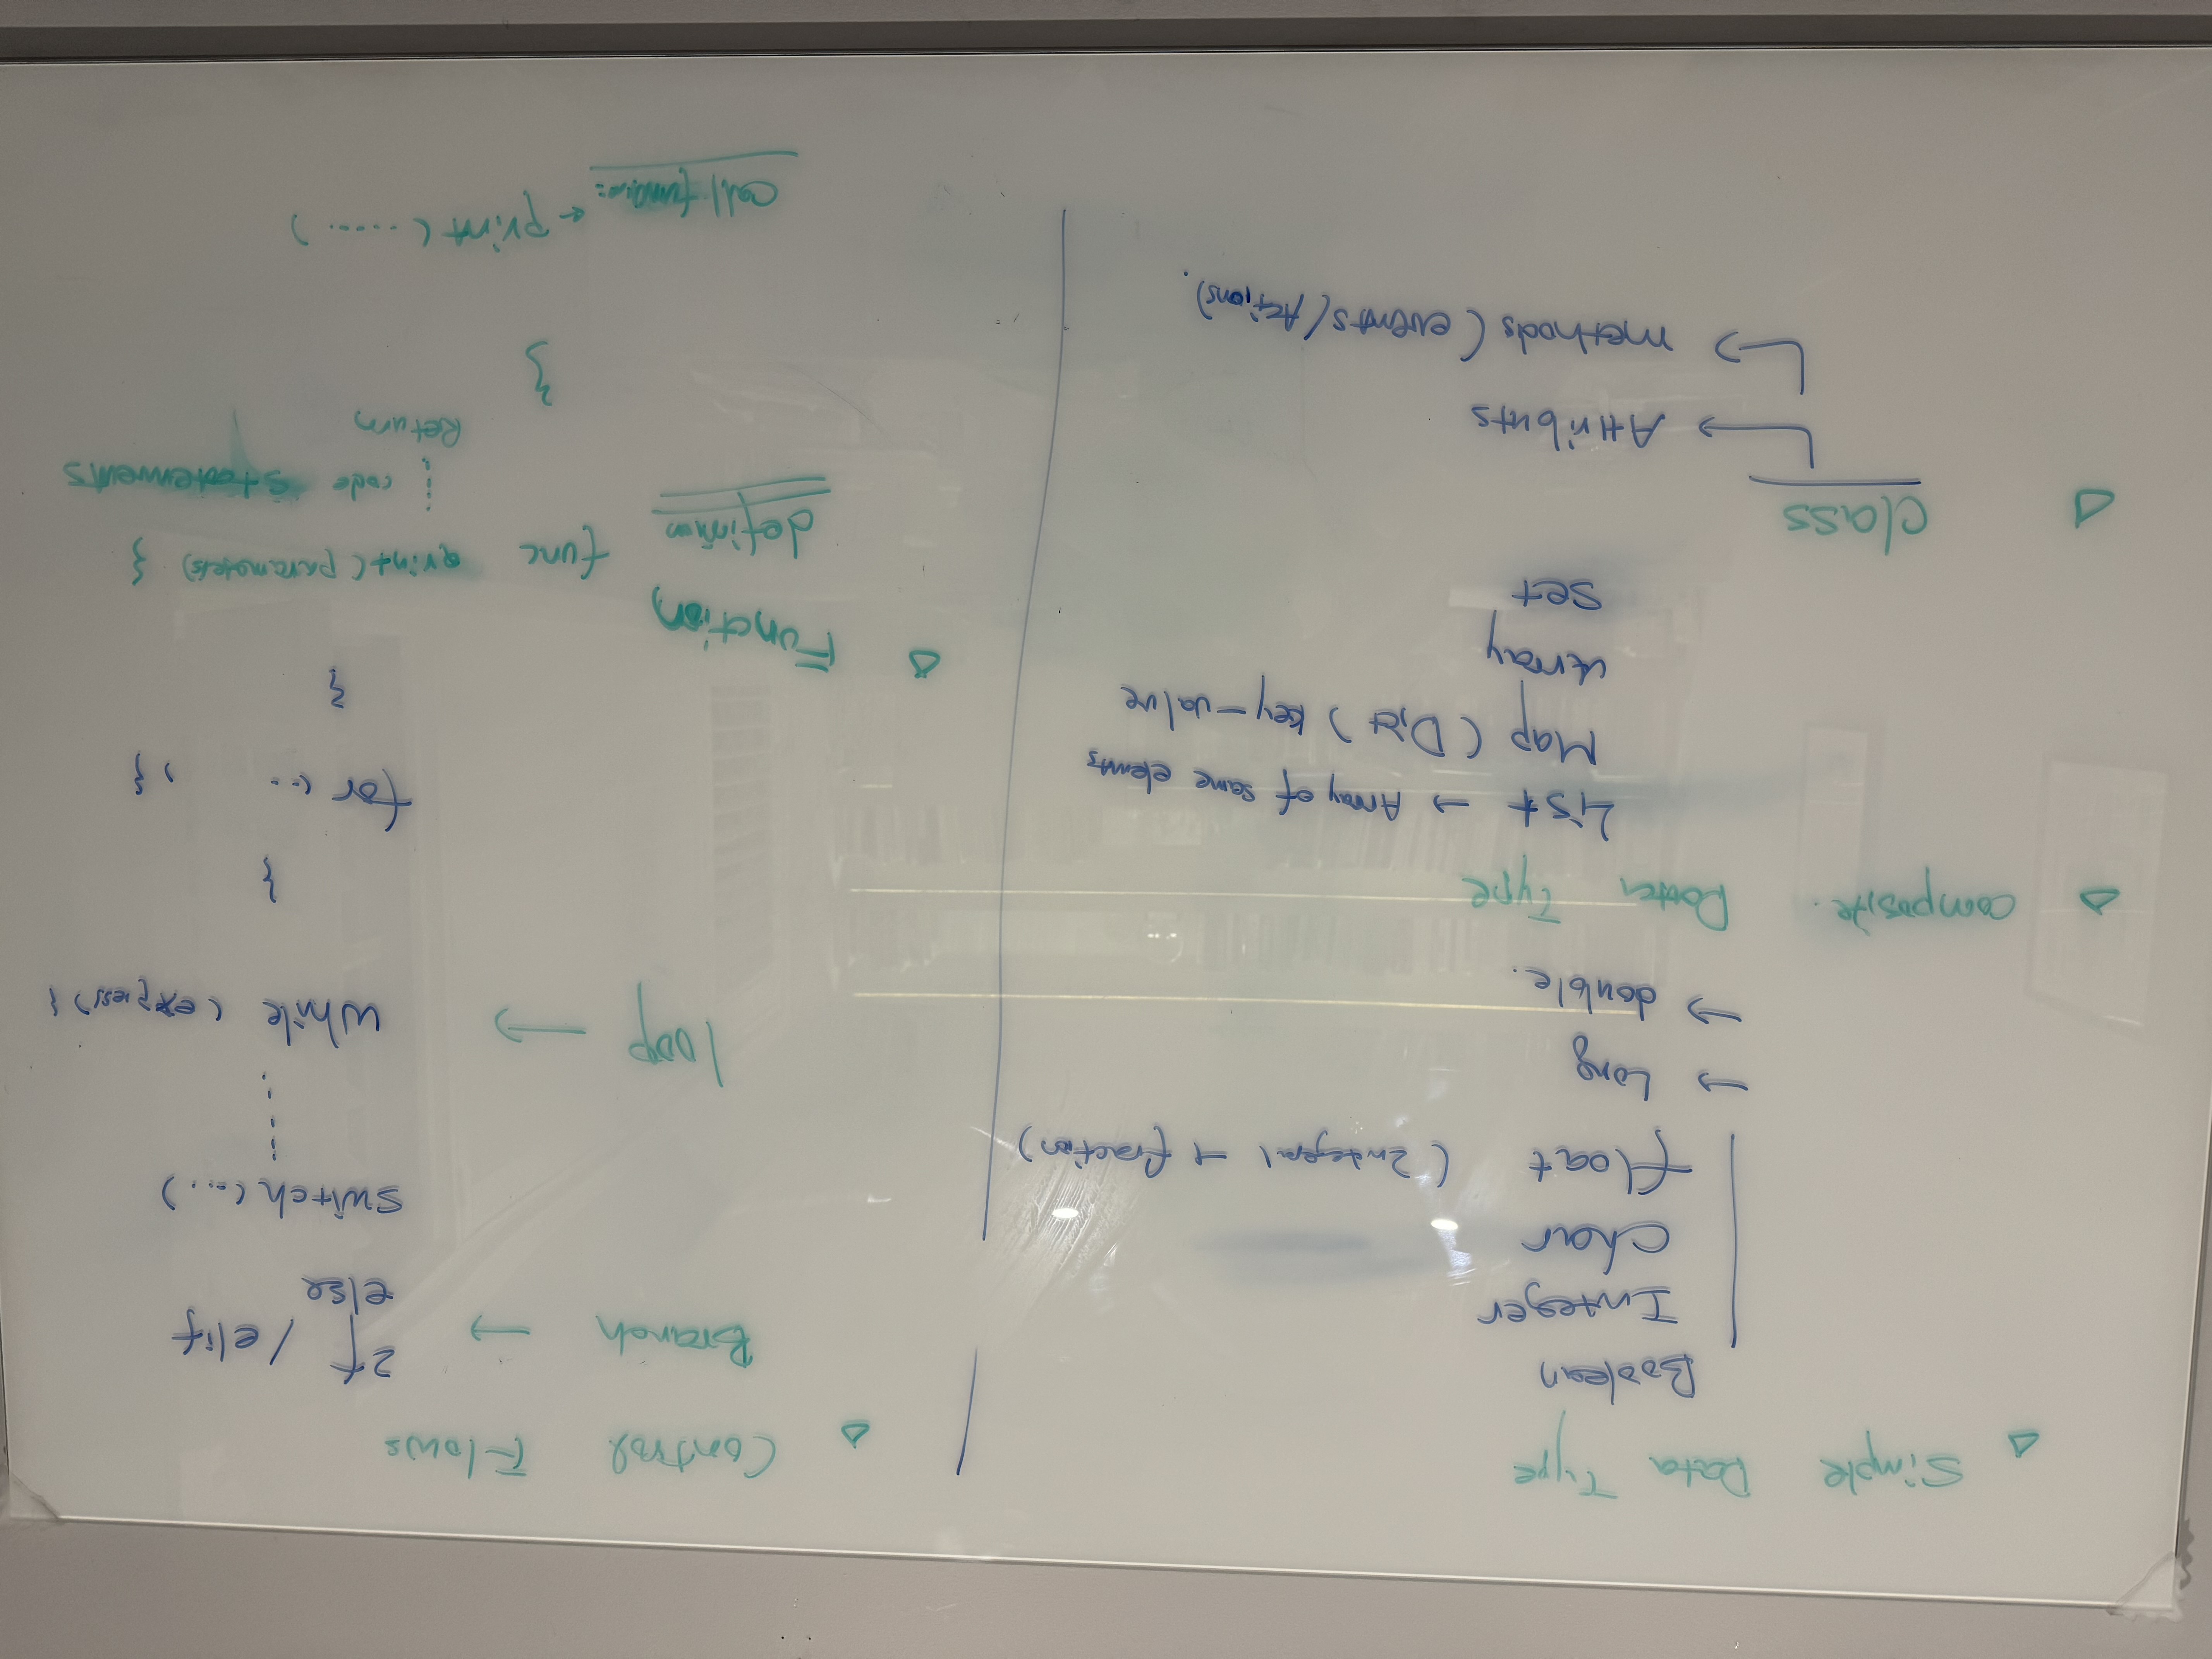 △ Simple Data Type
Boolean
Integer
char
float (Integral + fraction)
→ Long
→ double.
△ composite. Data Type
List → Array of same elemts
Map (Dict) key-value
Array
set
△ class
→ Attributs
→ methods (events/Actions).
△ Control Flows
Branch → If / elif
else
switch (...)
loop → while (express) {
}
for (.. ) {
}
△ Function
definition func print( parameters) {
code statements
Return
}
call function ← print ( ...... )